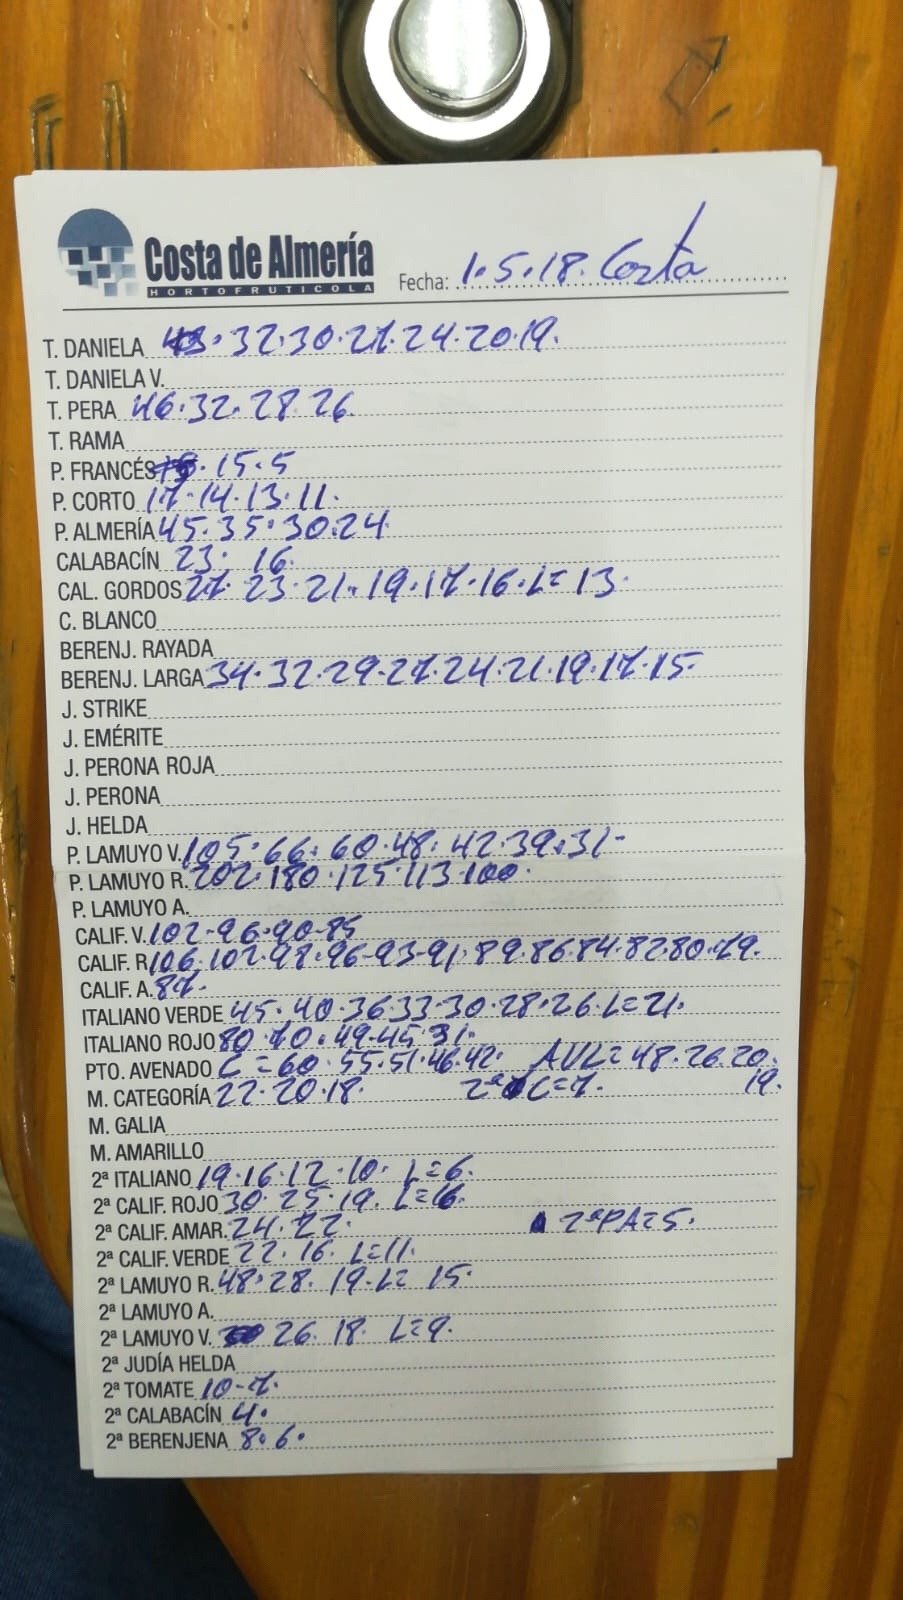 Costa de Almería
HORTOFRUTICOLA
Fecha: 1.5.18. Costa
T. DANIELA 43. 32. 30. 27. 24. 20. 19.
T. DANIELA V.
T. PERA 46. 32. 28. 26
T. RAMA
P. FRANCÉS . 15. 5
P. CORTO 17. 14. 13. 11.
P. ALMERÍA 45. 35. 30. 24
CALABACÍN 23. 16.
CAL. GORDOS 27. 23. 21. 19. 17. 16. L= 13.
C. BLANCO
BERENJ. RAYADA
BERENJ. LARGA 34. 32. 29. 27. 24. 21. 19. 17. 15
J. STRIKE
J. EMÉRITE
J. PERONA ROJA
J. PERONA
J. HELDA
P. LAMUYO V. 105. 66. 60. 48. 42. 39. 31-
P. LAMUYO R. 202. 180. 125. 113. 100.
P. LAMUYO A.
CALIF. V. 102-96-90-85
CALIF. R 106. 102. 98. 96-93-91. 89. 86. 84. 82. 80. 79.
CALIF. A. 87.
ITALIANO VERDE 45. 40. 36. 33. 30. 28. 26. L= 21.
ITALIANO ROJO 80. 70. 49. 45. 31.
PTO. AVENADO C = 60. 55. 51. 46. 42. AVL= 48. 26. 20.
M. CATEGORÍA 22. 20. 18. 2ª C=7. 19.
M. GALIA
M. AMARILLO
2ª ITALIANO 19. 16. 12. 10. L= 6.
2ª CALIF. ROJO 30. 25. 19. L= 16.
2ª CALIF. AMAR. 24. 22. 2ªPA=5.
2ª CALIF. VERDE 22. 16. L= 11.
2ª LAMUYO R. 48. 28. 19. L= 15.
2ª LAMUYO A.
2ª LAMUYO V. 26. 18. L= 9.
2ª JUDÍA HELDA
2ª TOMATE 10-7.
2ª CALABACÍN 4.
2ª BERENJENA 8. 6.